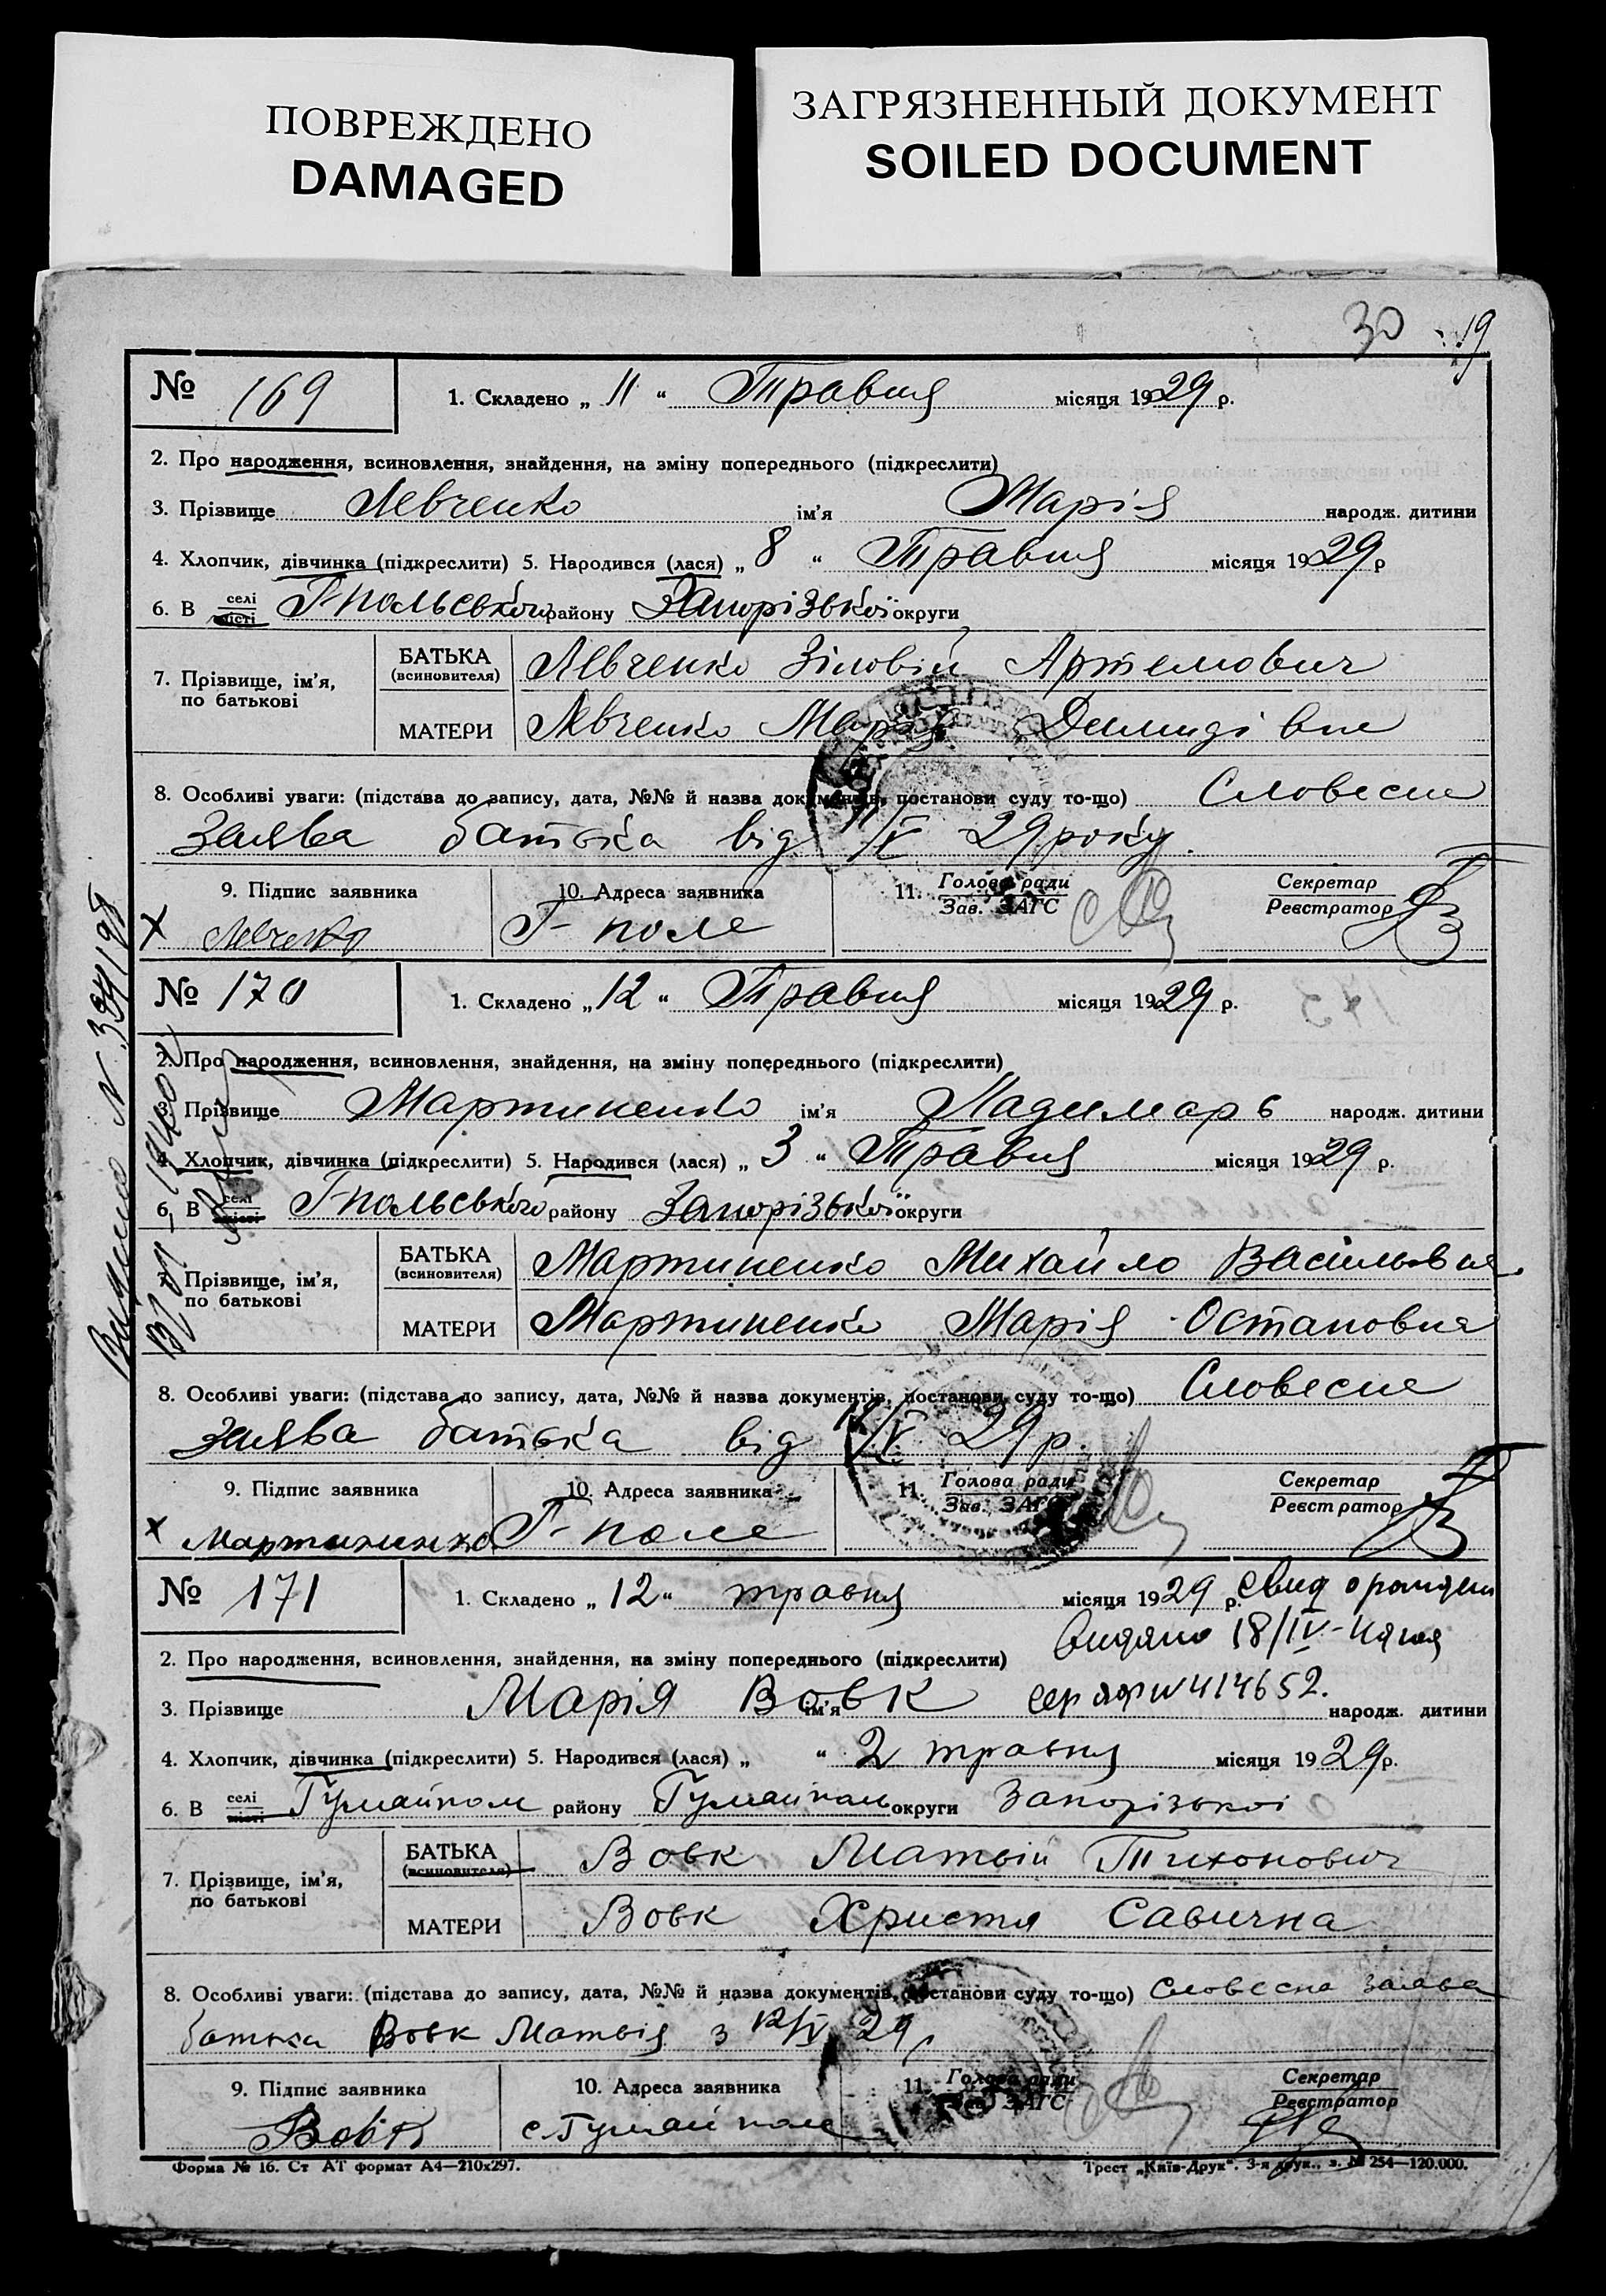 ПОВРЕЖДЕНО
DAMAGED
ЗАГРЯЗНЕННЫЙ ДОКУМЕНТ
SOILED DOCUMENT
30 19
№ 169 1. Складено „ 11 “ Травня місяця 1929 р.
2. Про народження, всиновлення, знайдення, на зміну попереднього (підкреслити)
3. Прізвище Левченко ім'я Марія народж. дитини
4. Хлопчик, дівчинка (підкреслити) 5. Народився (лася) „ 8 “ Травня місяця 1929 р
6. В селі місті Г-польського району Запорізької округи
7. Прізвище, ім'я, по батькові
БАТЬКА (всиновителя) Левченко Зіновій Артемович
МАТЕРИ Левченко Марія
8. Особливі уваги: (підстава до запису, дата, №№ й назва документів, постанови суду то-що) Словесне
Заява батька від 11/V 29 року.
9. Підпис заявника 10. Адреса заявника 11. Голова ради Зав. ЗАГС Секретар Реєстратор
х Левченко Г-поле
№ 170 1. Складено „ 12 “ Травня місяця 1929 р.
2. Про народження, всиновлення, знайдення, на зміну попереднього (підкреслити)
3. Прізвище Мартиненко ім'я народж. дитини
4. Хлопчик, дівчинка (підкреслити) 5. Народився (лася) „ 3 “ Травня місяця 1929 р.
6. В селі місті Г-польського району Запорізької округи
7. Прізвище, ім'я, по батькові
БАТЬКА (всиновителя) Мартиненко Михайло
МАТЕРИ Мартиненко Марія Остаповна
8. Особливі уваги: (підстава до запису, дата, №№ й назва документів, постанови суду то-що) Словесне
Заява батька від 12/V 29 р.
9. Підпис заявника 10. Адреса заявника 11. Голова ради Зав. ЗАГС Секретар Реєстратор
х Мартиненко Г-поле
№ 171 1. Складено „ 12 “ травня місяця 1929 р.
видано 18/IV
2. Про народження, всиновлення, знайдення, на зміну попереднього (підкреслити)
3. Прізвище Марія ім'я Вовк N 414652. народж. дитини
4. Хлопчик, дівчинка (підкреслити) 5. Народився (лася) „ “ 2 травня місяця 1929 р.
6. В селі місті Гуляйполе району Гуляйполе округи Запорізької
7. Прізвище, ім'я, по батькові
БАТЬКА (всиновителя) Вовк Матвій Тихонович
МАТЕРИ Вовк Христя Савична
8. Особливі уваги: (підстава до запису, дата, №№ й назва документів, постанови суду то-що) Словесна заява
батька Вовк Матвія з 12/V 29 р
9. Підпис заявника 10. Адреса заявника 11. Голова ради Зав. ЗАГС Секретар Реєстратор
Вовк с. Гуляй поле
Форма № 16. Ст АТ формат А4—210х297.
Трест „Київ-Друк“. 3-я друк., з. № 254—120.000.